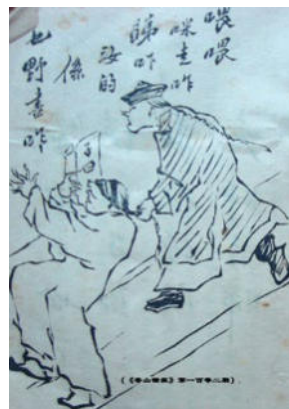 喂喂
咪走咋
睇吓
汝的
係
乜野書咋
子曰
(《香山旬報》第一百零二期)